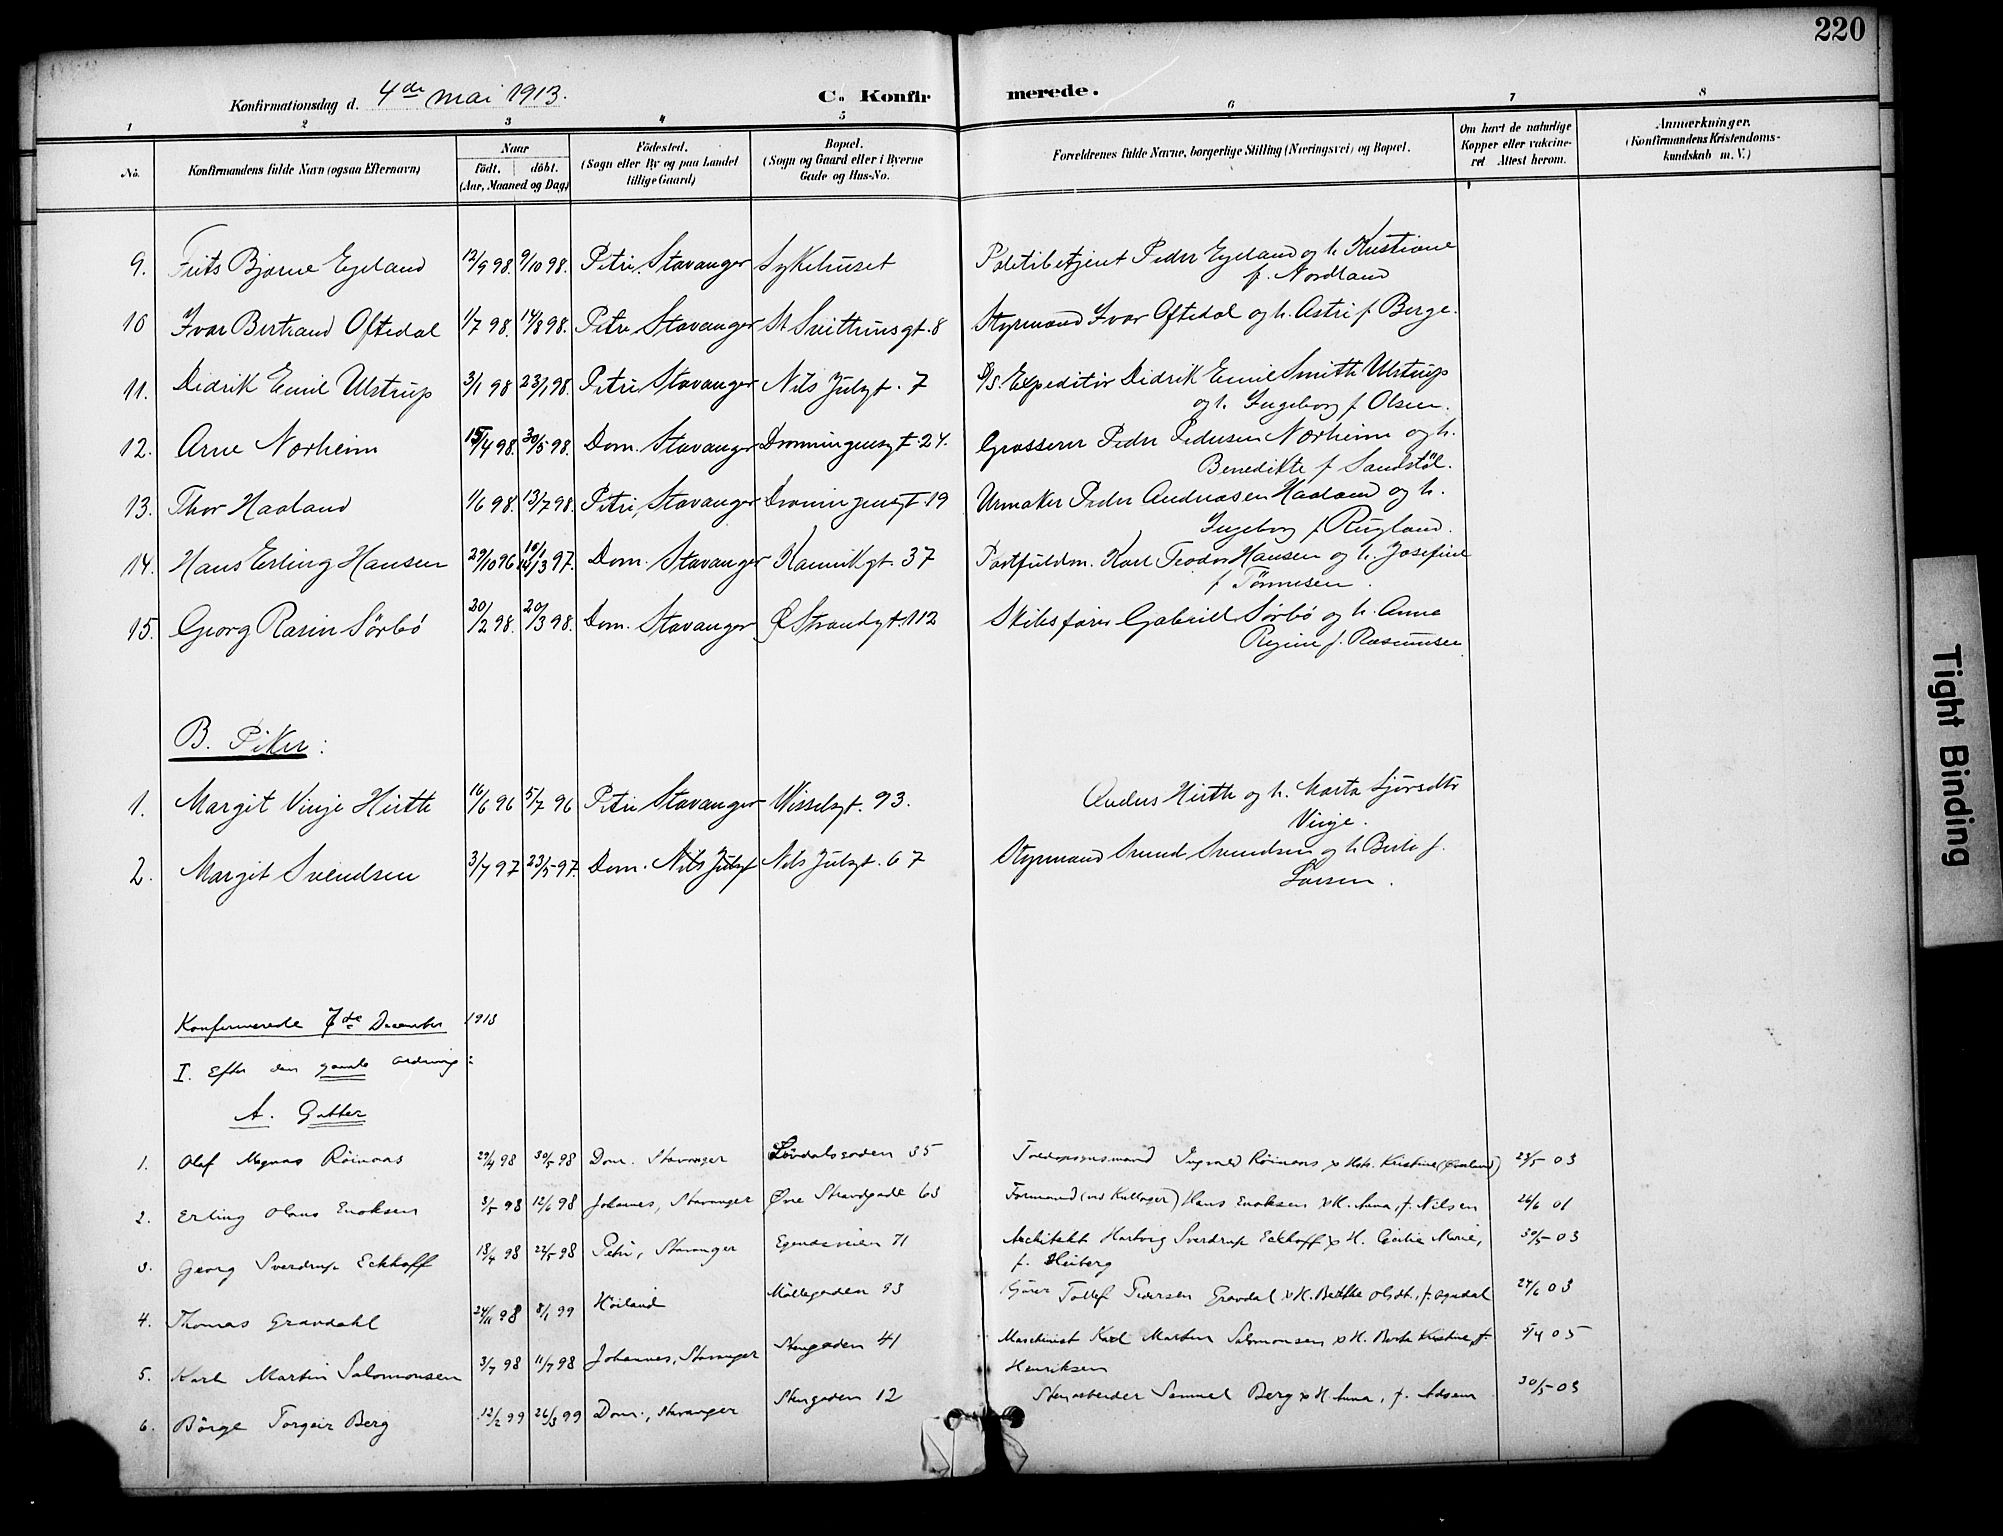 220
Konfirmationsdag d. 4de mai 1913.
C. Konfirmerede.
1 2 3 4 5 6 7 8
No.
Konfirmandens fulde Navn (ogsaa Efternavn)
Naar
født. døbt.
(Aar, Maaned og Dag)
Födested.
(Sogn eller By og paa Landet
tillige Gaard)
Bopæl.
(Sogn og Gaard eller i Byerne
Gade og Hus-No.
Forældrenes fulde Navne, borgerlige Stilling (Næringsvei) og Bopæl.
Om havt de naturlige
Kopper eller vakcine-
ret Attest herom.
Anmærkninger.
(Konfirmandens Kristendoms-
kundskab m. V.)
9. Frits Bjarne Egeland 12/9 98. 9/10 98. Petri, Stavanger Sykehuset Politibetjent Peder Egeland og h. Kristiane
f. Nordland
10 Ivar Bertrand Oftedal 1/7 98. 14/8 98. Petri Stavanger St Svithunsgt. 8 Styrmand Ivar Oftedal og h. Astri f Berge.
11. Didrik Emil Ulstrup 3/1 98 23/1 98. Petri Stavanger Nils Julsgt. 7 D/S. Expeditör Didrik Emil Smith Ulstrup
og h. Ingeborg f Olsen.
12. Arne Nørheim 15/4 98. 30/5 98. Dom. Stavanger Dronningensgt. 24. Grosserer Peder Pedersen Nørheim og h.
Benedikte f Sandstöl.
13. Thor Haaland 1/6 98. 13/7 98. Petri, Stavanger Dronningensgt. 19 Urmaker Peder Andreasen Haaland og h.
Ingeborg f Rugland.
14. Hans Erling Hansen 29/10 96 14/3 97. Dom. Stavanger Kannikgt. 37 Postfuldm. Karl Teodor Hansen og h. Josefine
f Tönnesen.
15. Georg Rasin Sörbö 20/2 98. 20/3 98. Dom. Stavanger Ø Strandgt. 112 Skibsfører Gabriel Sörbö og h. Anna
Regine f. Rasmussen.
B. Piker:
1. Margit Vinje Hirth 16/6 96 5/7 96 Petri Stavanger Nisselsgt. 93. Anders Hirth og h. Marta Sjursdtr
Vinje.
2. Margit Svendsen 3/4 97 23/5 97. Dom. Nils Julsgt Nils Julsgt. 67 Styrmand Svend Svendsen og h. Berte f.
Larsen.
Konfirmerede 7de December 1913
I. Efter den gamle ordning:
A. Gutter
1. Olaf Magnus Röinaas 29/4 98 30/5 98 Dom. Stavanger Lövdalsgaden 35 Toldopsynsmand Ingvald Röinaas x Hst. Kristine 23/5 03
2. Erling Olaus Enoksen 3/5 98 12/6 98 Johannes, Stavanger Øvre Strandgade 63 Formand (ved Kullager) Hans Enoksen x H. Anna, f. Nilsen 26/6 01
3. Georg Sverdrup Eckhoff 18/4 98 22/5 98 Petri, Stavanger Egenæsveien 71 Architekt Hartvig Sverdrup Eckhoff x H. Cecilie Marie, 30/5 03
f. Heiberg
4. Thomas Gravdahl 24/11 98 8/1 99 Höiland Möllegaden 93 Kjører Tollef Pedersen Gravdal x H. Berthe Olsdt., f. Ogedal 24/6 03
5. Karl Martin Salomonsen 3/7 98 11/7 98 Johannes, Stavanger Stengaden 41 Maschinist Karl Martin Salomonsen x H. Berte Kristine f. 5/4 05
Henriksen
6. Börge Torgeir Berg 12/2 99 26/3 99 Dom., Stavanger Stengaden 12 Stenarbeider Samuel Berg x H. Anna, f. Adsen 30/5 03
Tight Binding